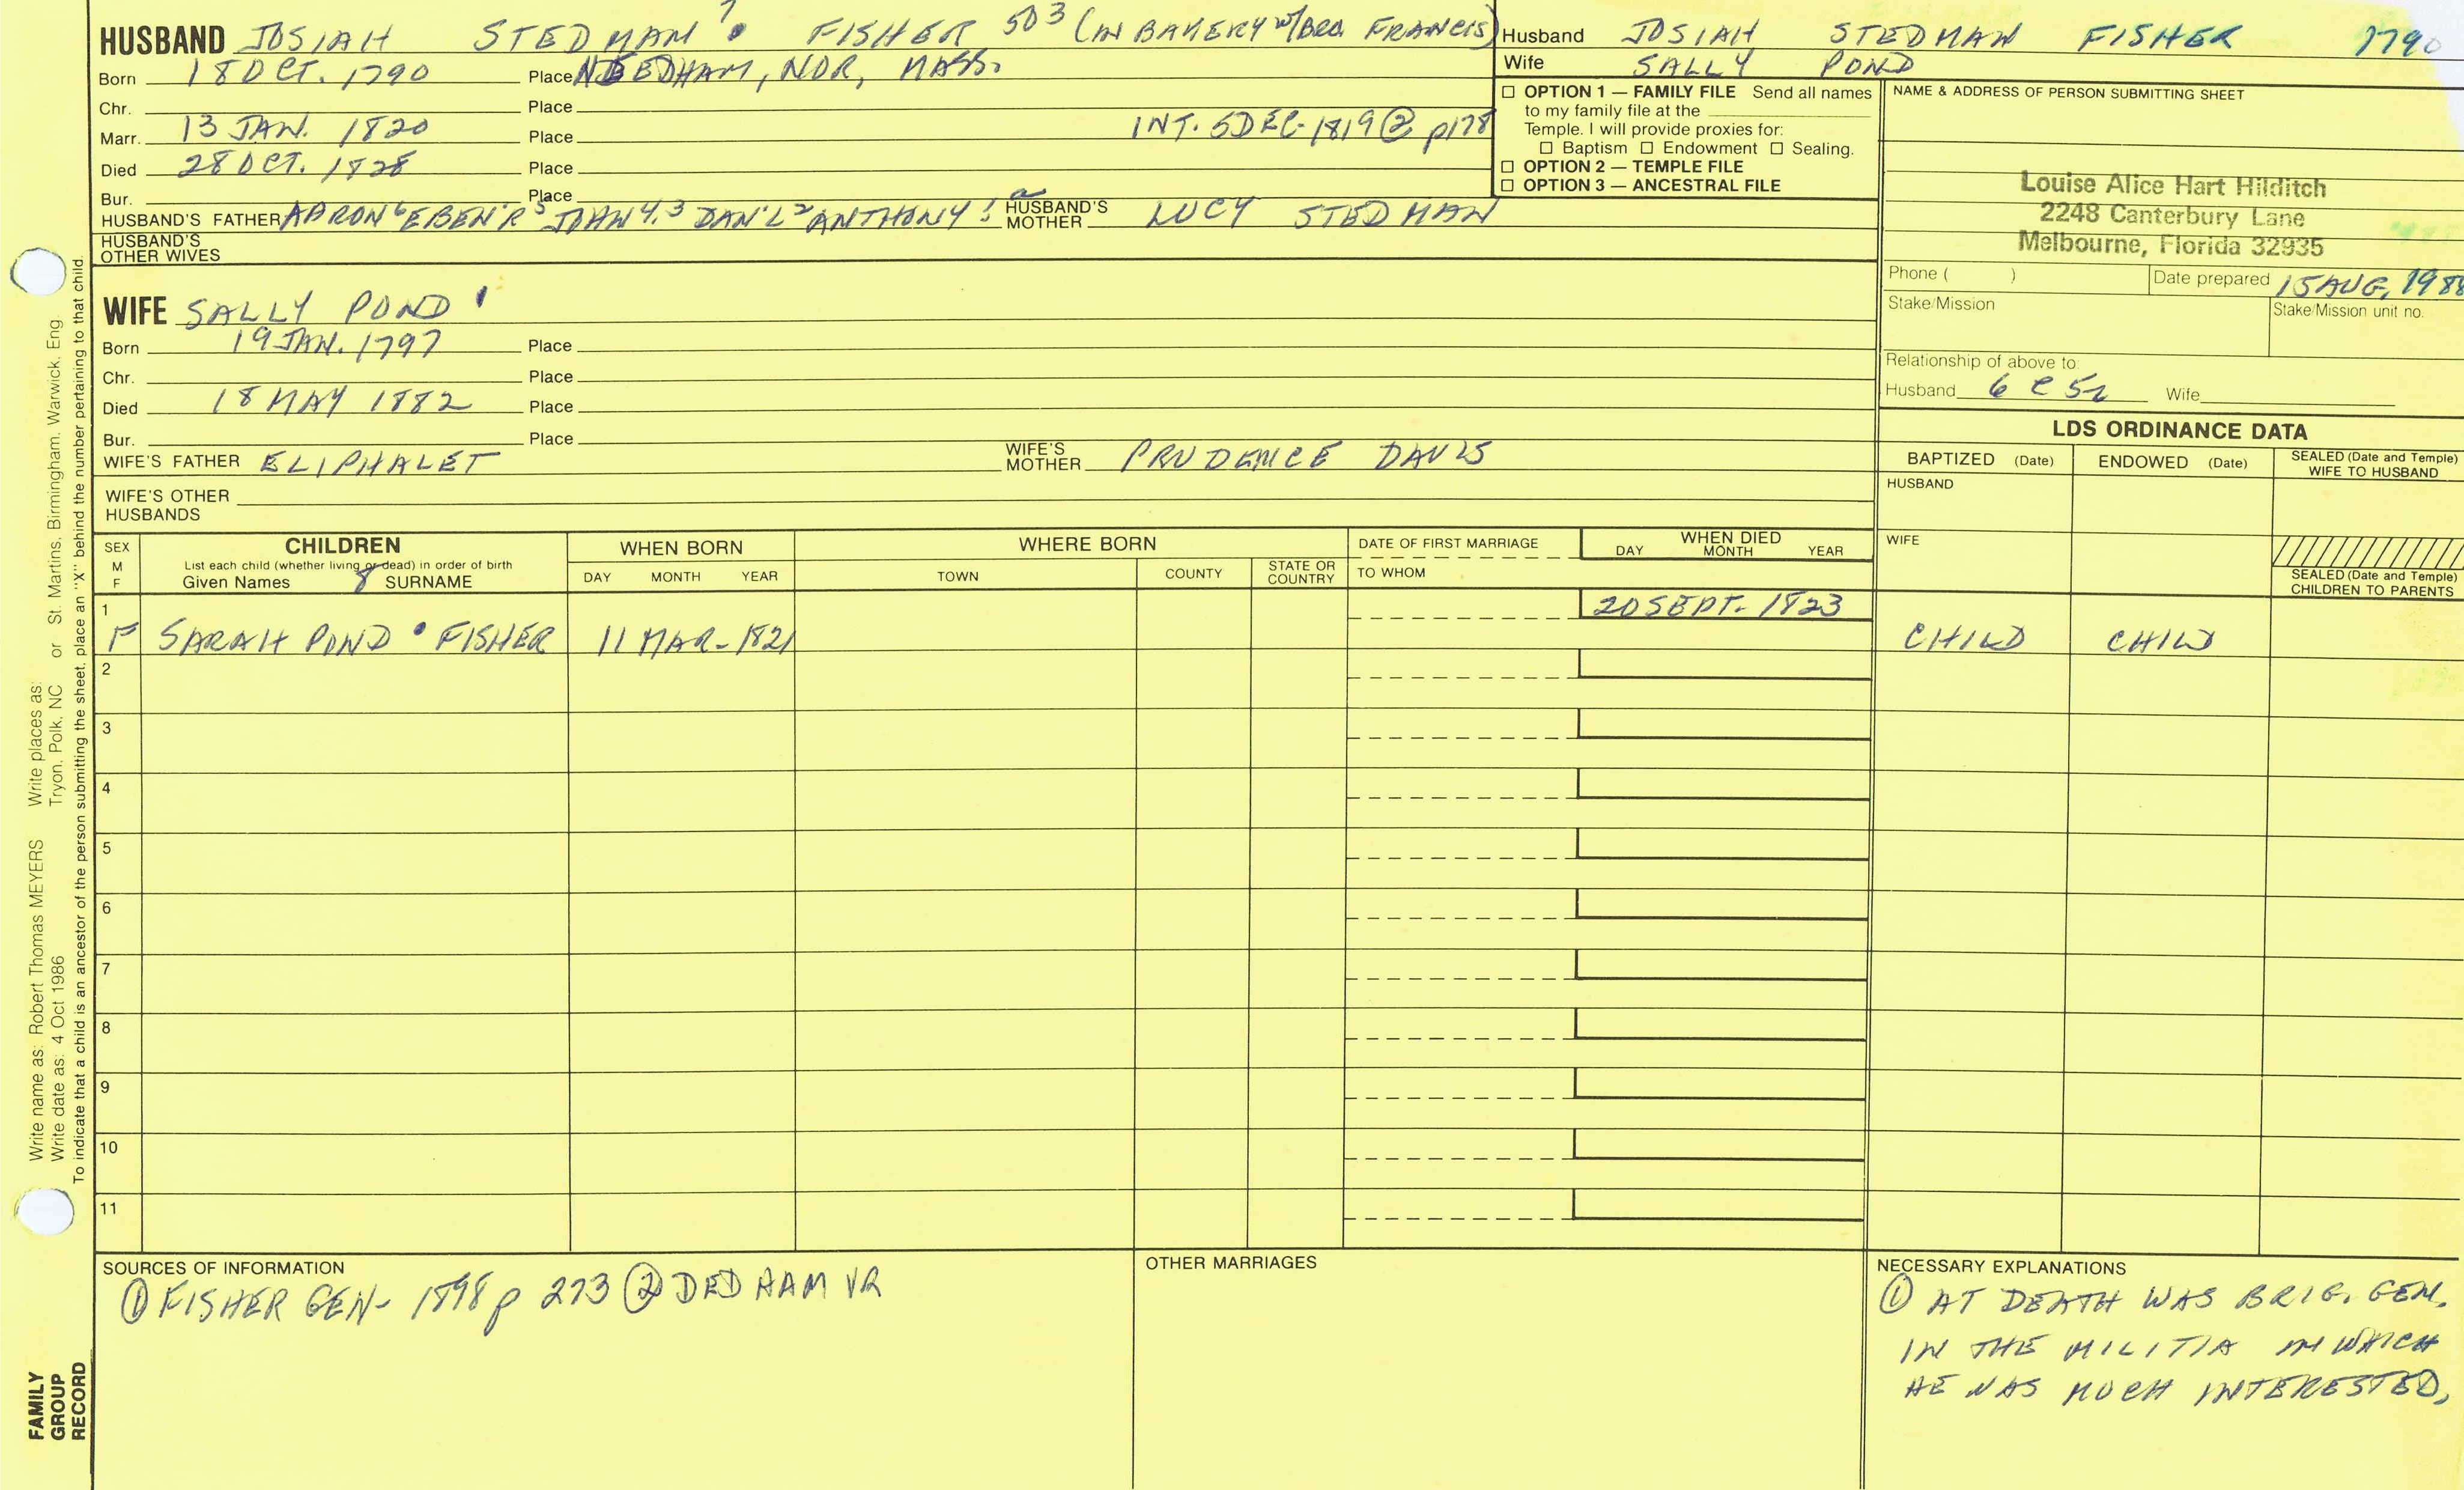 HUSBAND JOSIAH STEDMAN 7 FISHER 503 (IN BAKERY W/BRO. FRANCIS)
Born 18 OCT. 1790 Place NEEDHAM, NOR, MASS.
Chr. Place
Marr. 13 JAN. 1820 Place INT. 5 DEC. 1819 ② p178
Died 28 OCT. 1828 Place
Bur. Place
HUSBAND'S FATHER AARON 6 EBEN'R 5 JOHN 4,3 DAN'L 2 ANTHONY 1 HUSBAND'S MOTHER LUCY STEDMAN
HUSBAND'S OTHER WIVES
Husband JOSIAH STEDMAN FISHER 1790
Wife SALLY POND
☐ OPTION 1 — FAMILY FILE Send all names
to my family file at the
Temple. I will provide proxies for:
☐ Baptism ☐ Endowment ☐ Sealing.
☐ OPTION 2 — TEMPLE FILE
☐ OPTION 3 — ANCESTRAL FILE
NAME & ADDRESS OF PERSON SUBMITTING SHEET
Louise Alice Hart Hilditch
2248 Canterbury Lane
Melbourne, Florida 32935
Phone ( ) Date prepared 15 AUG, 1988
Stake/Mission Stake/Mission unit no.
Relationship of above to:
Husband 6 C 5r Wife
WIFE SALLY POND
Born 19 JAN. 1797 Place
Chr. Place
Died 18 MAY 1882 Place
Bur. Place
WIFE'S FATHER ELIPHALET WIFE'S MOTHER PRUDENCE DAVIS
WIFE'S OTHER HUSBANDS
LDS ORDINANCE DATA
BAPTIZED (Date) ENDOWED (Date) SEALED (Date and Temple) WIFE TO HUSBAND
HUSBAND
WIFE
SEALED (Date and Temple) CHILDREN TO PARENTS
SEX M F
CHILDREN
List each child (whether living or dead) in order of birth
Given Names 8 SURNAME
WHEN BORN
DAY MONTH YEAR
WHERE BORN
TOWN COUNTY STATE OR COUNTRY
DATE OF FIRST MARRIAGE
TO WHOM
WHEN DIED
DAY MONTH YEAR
1 20 SEPT. 1823
F SARAH POND FISHER 11 MAR. 1821 CHILD CHILD
2
3
4
5
6
7
8
9
10
11
SOURCES OF INFORMATION
① FISHER GEN. 1898 p 273 ② DEDHAM VR
OTHER MARRIAGES
NECESSARY EXPLANATIONS
① AT DEATH WAS BRIG. GEN.
IN THE MILITIA IN WHICH
HE WAS MUCH INTERESTED.
Write name as: Robert Thomas MEYERS Write places as:
Write date as: 4 Oct 1986 Tryon, Polk, NC or St. Martins, Birmingham, Warwick, Eng.
To indicate that a child is an ancestor of the person submitting the sheet, place an "X" behind the number pertaining to that child.
FAMILY
GROUP
RECORD